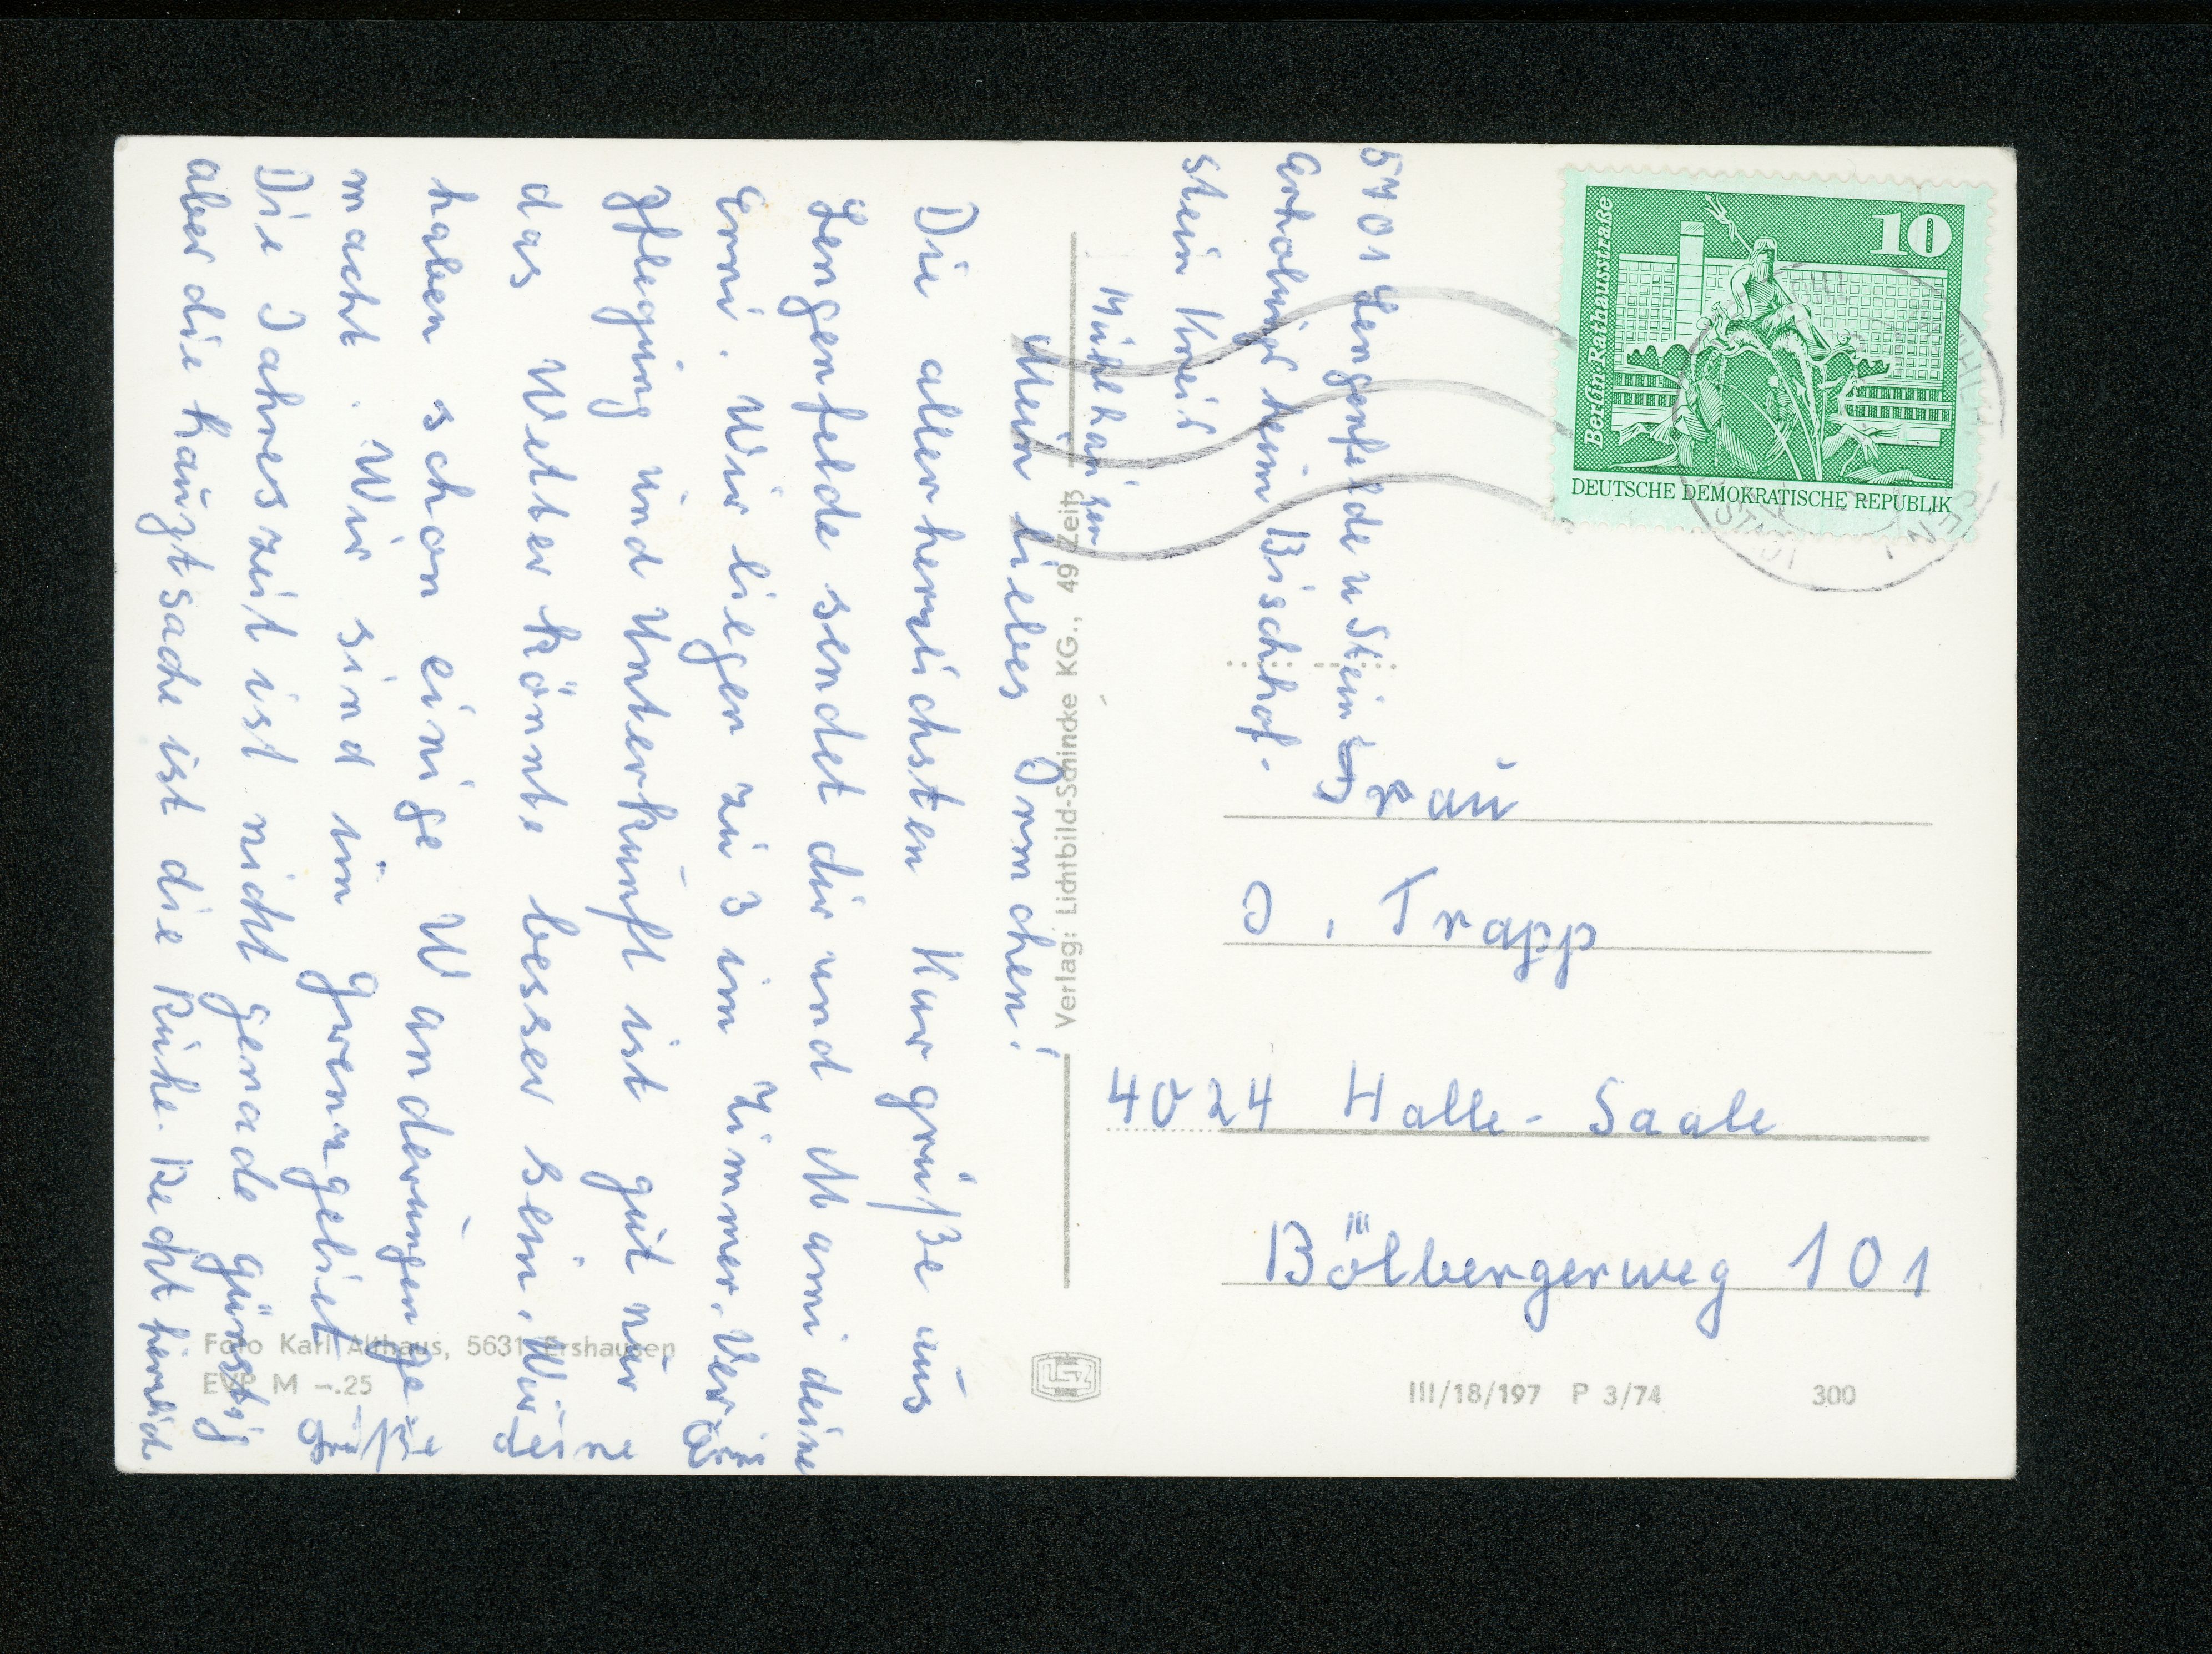 5701 Lengenfelde u Stein
Erholungsheim Bischhof-
stein Kreis
Mühlhausen
Mein liebes Irmchen!
Die allerherzlichsten Kurgrüße aus
Lengenfelde sendet dir und Mami deine
Erni. Wir liegen zu 3 im Zimmer. Ver
pflegung und Unterkunft ist gut nur
das Wetter könnte besser sein. Wir
haben schon einige Wanderungen ge
macht. Wir sind im Grenzgebiet
Die Jahreszeit ist nicht gerade günstig
aber die Hauptsache ist die Ruhe. Recht herzliche
Grüße deine
Verlag: Lichtbild-Schincke KG., 49 Zeitz
Foto Karl Althaus, 5631 Ershausen
EVP M –.25
Berlin, Rathausstraße
10
DEUTSCHE DEMOKRATISCHE REPUBLIK
Frau
I. Trapp
4024 Halle-Saale
Bölbergerweg 101
III/18/197 P 3/74 300